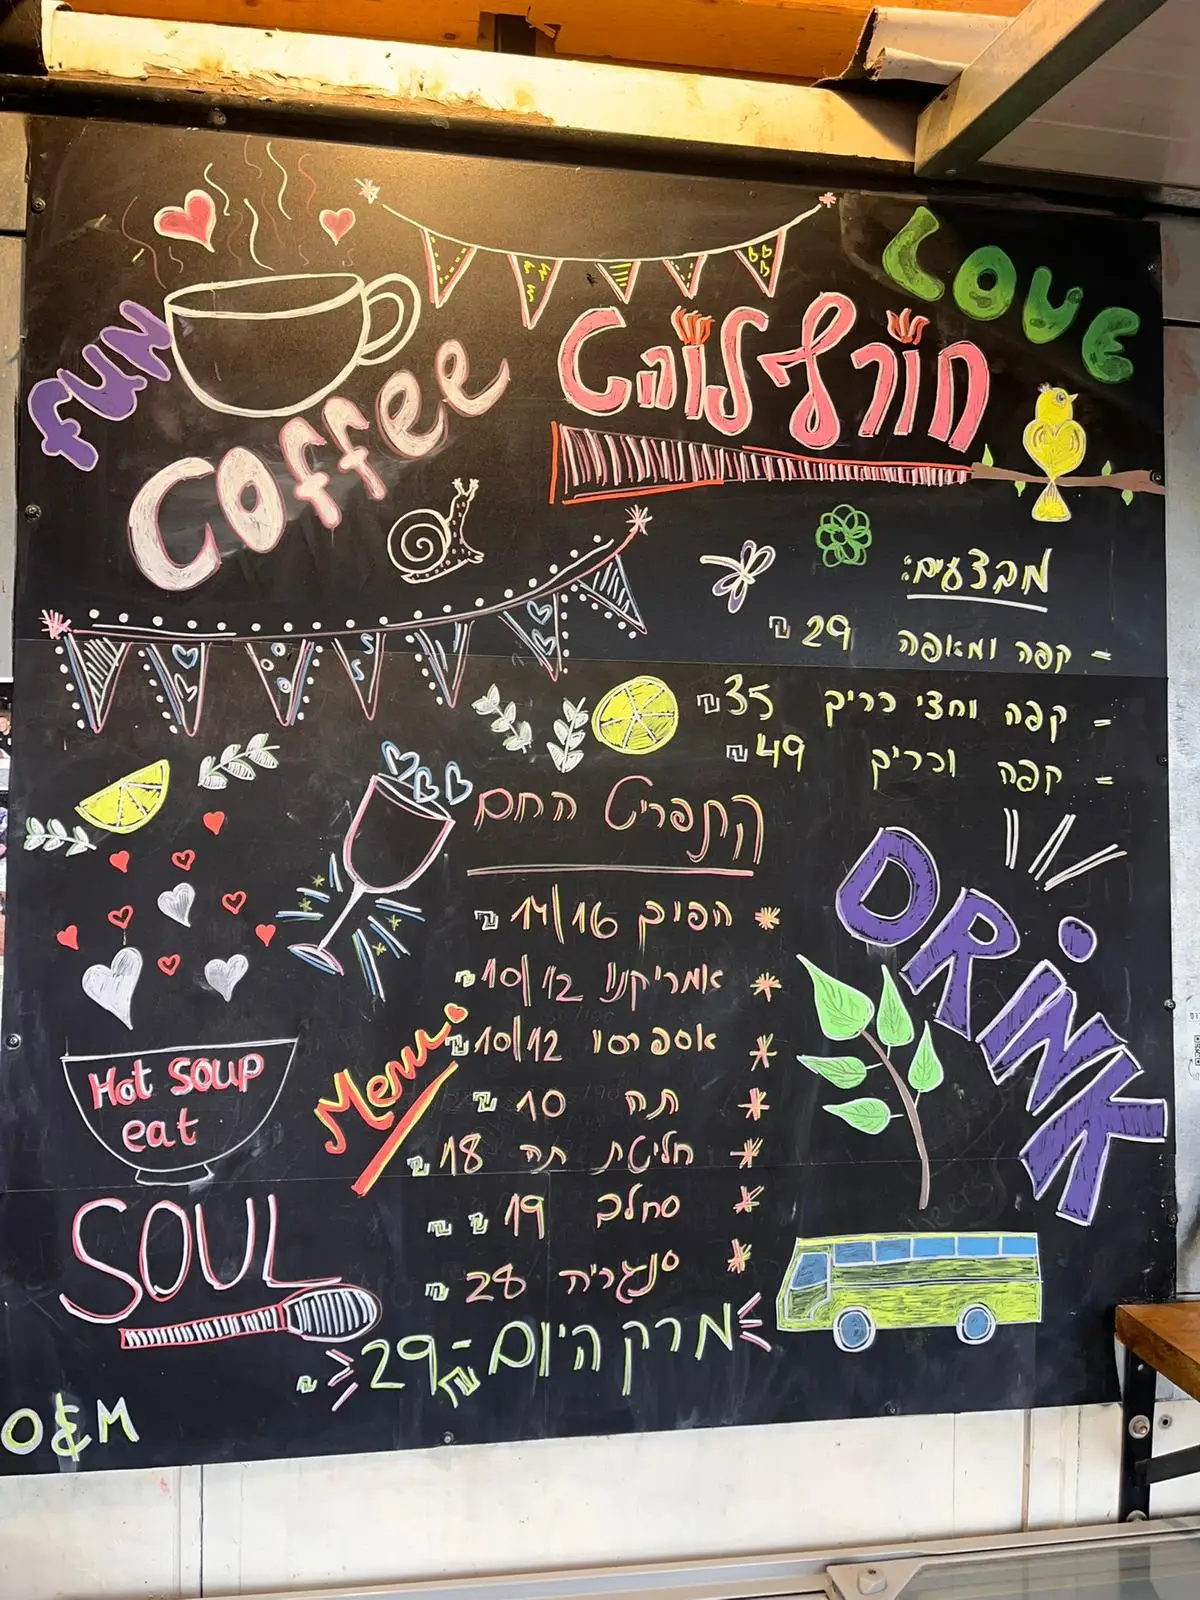 LOVE
FUN
Coffee
חורף לוהט
מבצעים:
- קפה ומאפה 29 ₪
- קפה וחצי כריך 35 ₪
- קפה וכריך 49 ₪
התפריט החם
* הפוך 14/16 ₪
* אמריקנו 10/12 ₪
* אספרסו 10/12 ₪
* תה 10 ₪
* חליטת תה 18 ₪
* סחלב 19 ₪ ₪
* סנגריה 28 ₪
מרק היום - 29 ₪
Menu
DRINK
Hot soup
eat
SOUL
O&M